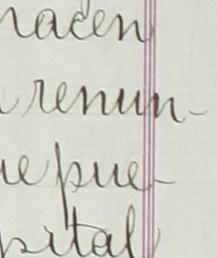 nacen
renun-
ue pue-
pital